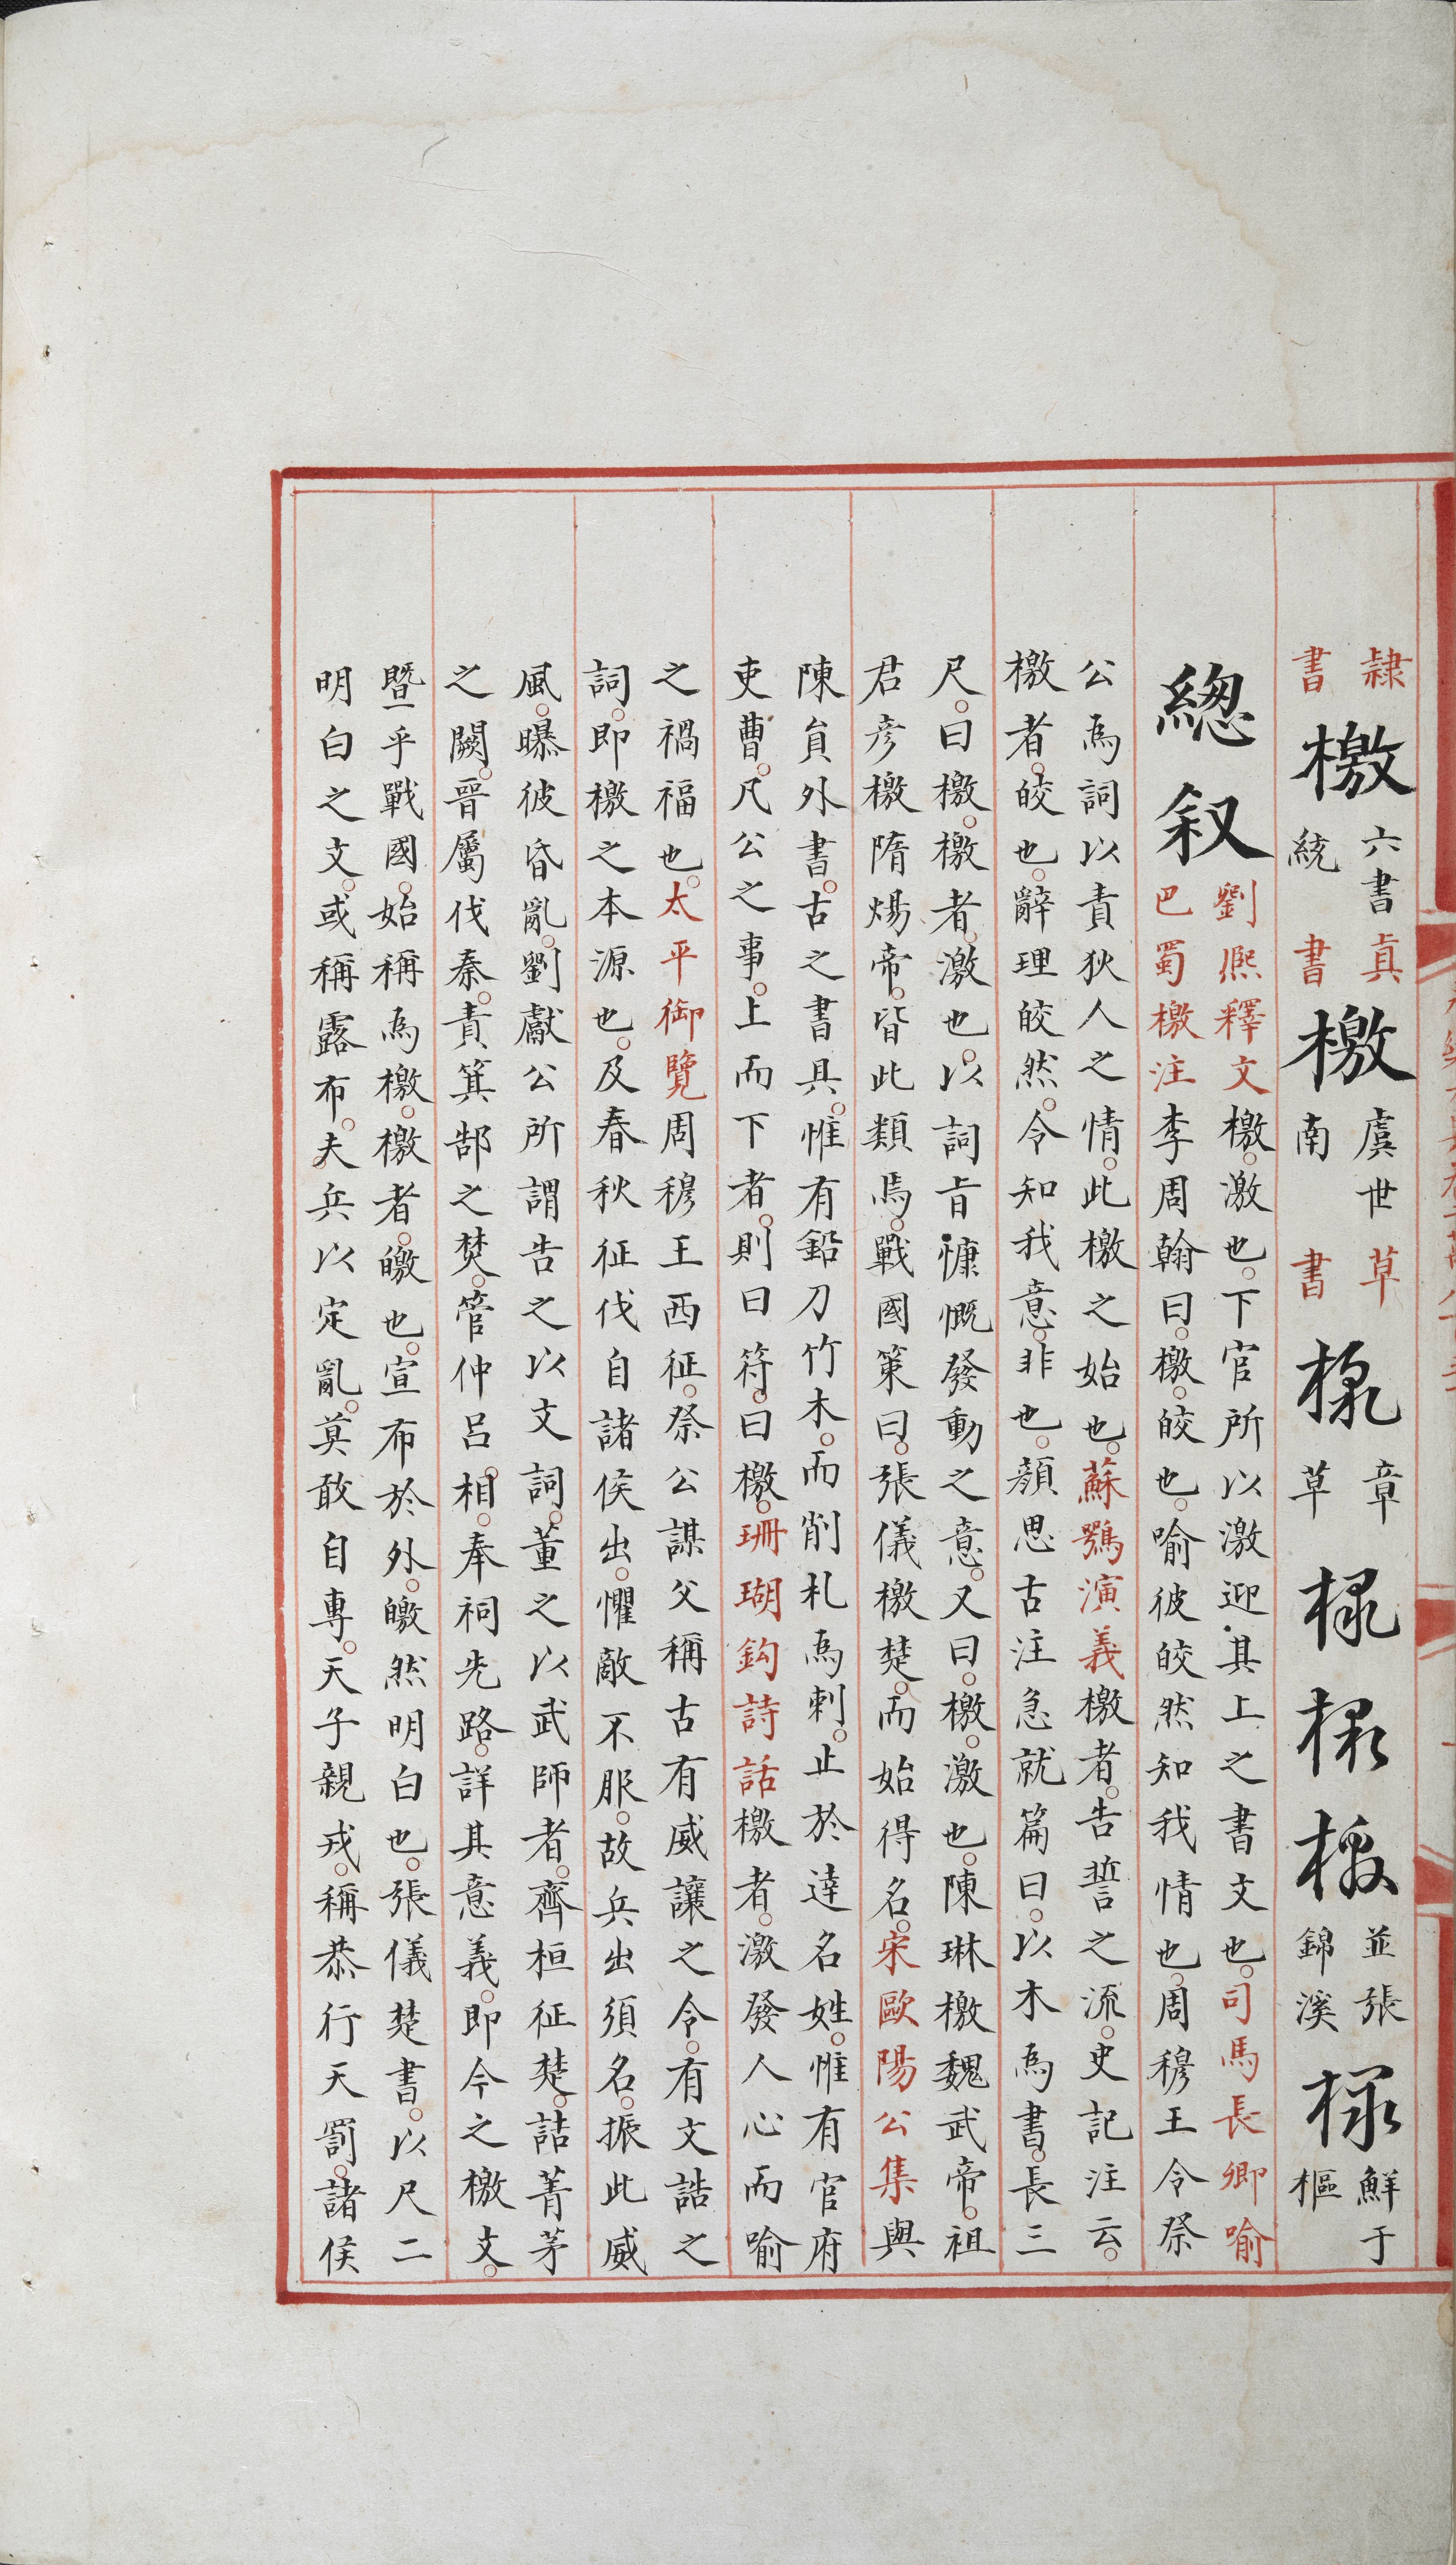 隸書檄六書統真書檄虞世南草書檄章草檄檄檄並張錦溪檄鮮于樞
總叙
劉熈釋文檄激也下官所以激迎其上之書文也司馬長卿喻
巴蜀檄注李周翰曰檄皎也喻彼皎然知我情也周穆王令祭
公為詞以責狄人之情此檄之始也蘇鶚演義檄者告誓之流史記注云
檄者皎也辭理皎然令知我意非也顔思古注急就篇曰以木為書長三
尺曰檄檄者激也以詞㫖慷慨發動之意又曰檄激也陳琳檄魏武帝祖
君彦檄隋煬帝皆此類焉戰國策曰張儀檄楚而始得名宋歐陽公集與
陳貟外書古之書具惟有鉛刀竹木而削札為刺止於達名姓惟有官府
吏曹凡公之事上而下者則曰符曰檄珊瑚鈎詩話檄者激發人心而喻
之禍福也太平御覽周穆王西征祭公謀父稱古有威讓之令有文誥之
詞即檄之本源也及春秋征伐自諸侯出懼敵不服故兵出須名振此威
風曝彼昏亂劉獻公所謂告之以文詞董之以武師者齊桓征楚詰菁茅
之闕晉屬伐秦責箕郜之焚管仲吕相奉祠先路詳其意義即今之檄文
暨乎戰國始稱為檄檄者皦也宣布於外皦然明白也張儀楚書以尺二
明白之文或稱露布夫兵以定亂莫敢自専天子親戎稱恭行天罰諸侯